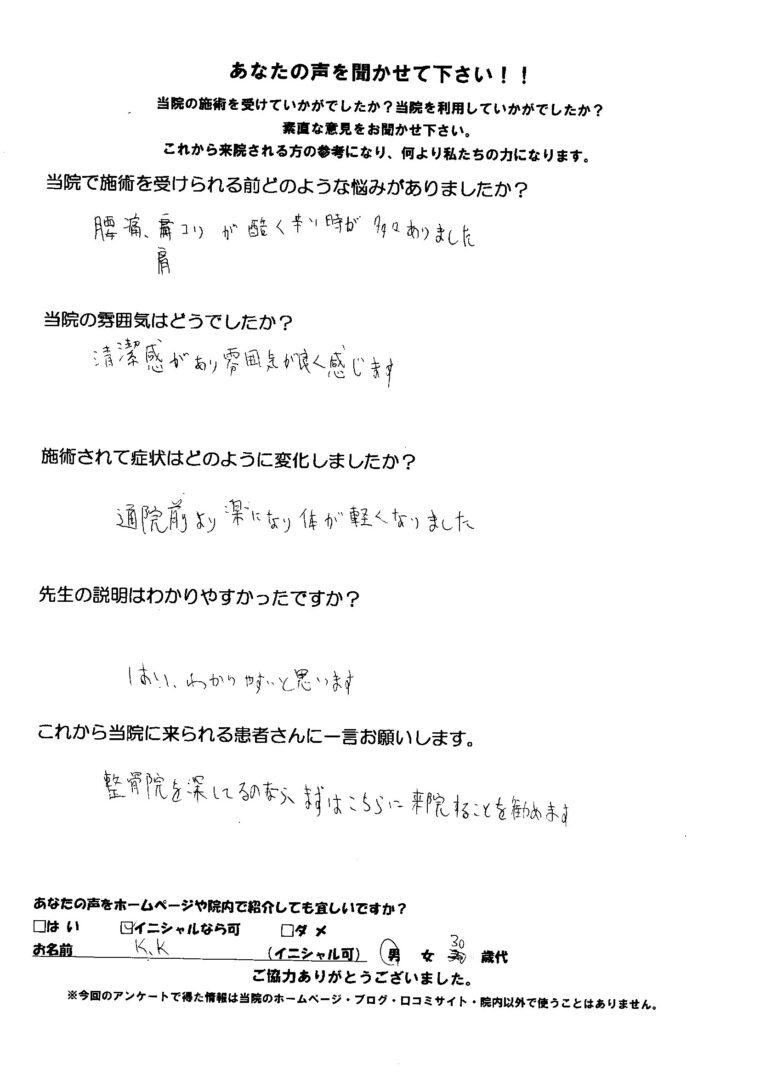 あなたの声を聞かせて下さい！！
当院の施術を受けていかがでしたか？当院を利用していかがでしたか？
素直な意見をお聞かせ下さい。
これから来院される方の参考になり、何より私たちの力になります。
当院で施術を受けられる前どのような悩みがありましたか？
腰痛、肩コリが酷く辛い時が多々ありました
肩
当院の雰囲気はどうでしたか？
清潔感があり雰囲気が良く感じます
施術されて症状はどのように変化しましたか？
通院前より楽になり体が軽くなりました
先生の説明はわかりやすかったですか？
はい、わかりやすいと思います
これから当院に来られる患者さんに一言お願いします。
整骨院を探してるのなら、まずはこちらに来院することを勧めます
あなたの声をホームページや院内で紹介しても宜しいですか？
□はい ☑イニシャルなら可 □ダメ
お名前 K.K （イニシャル可） 男 女 30 歳代
ご協力ありがとうございました。
※今回のアンケートで得た情報は当院のホームページ・ブログ・口コミサイト・院内以外で使うことはありません。